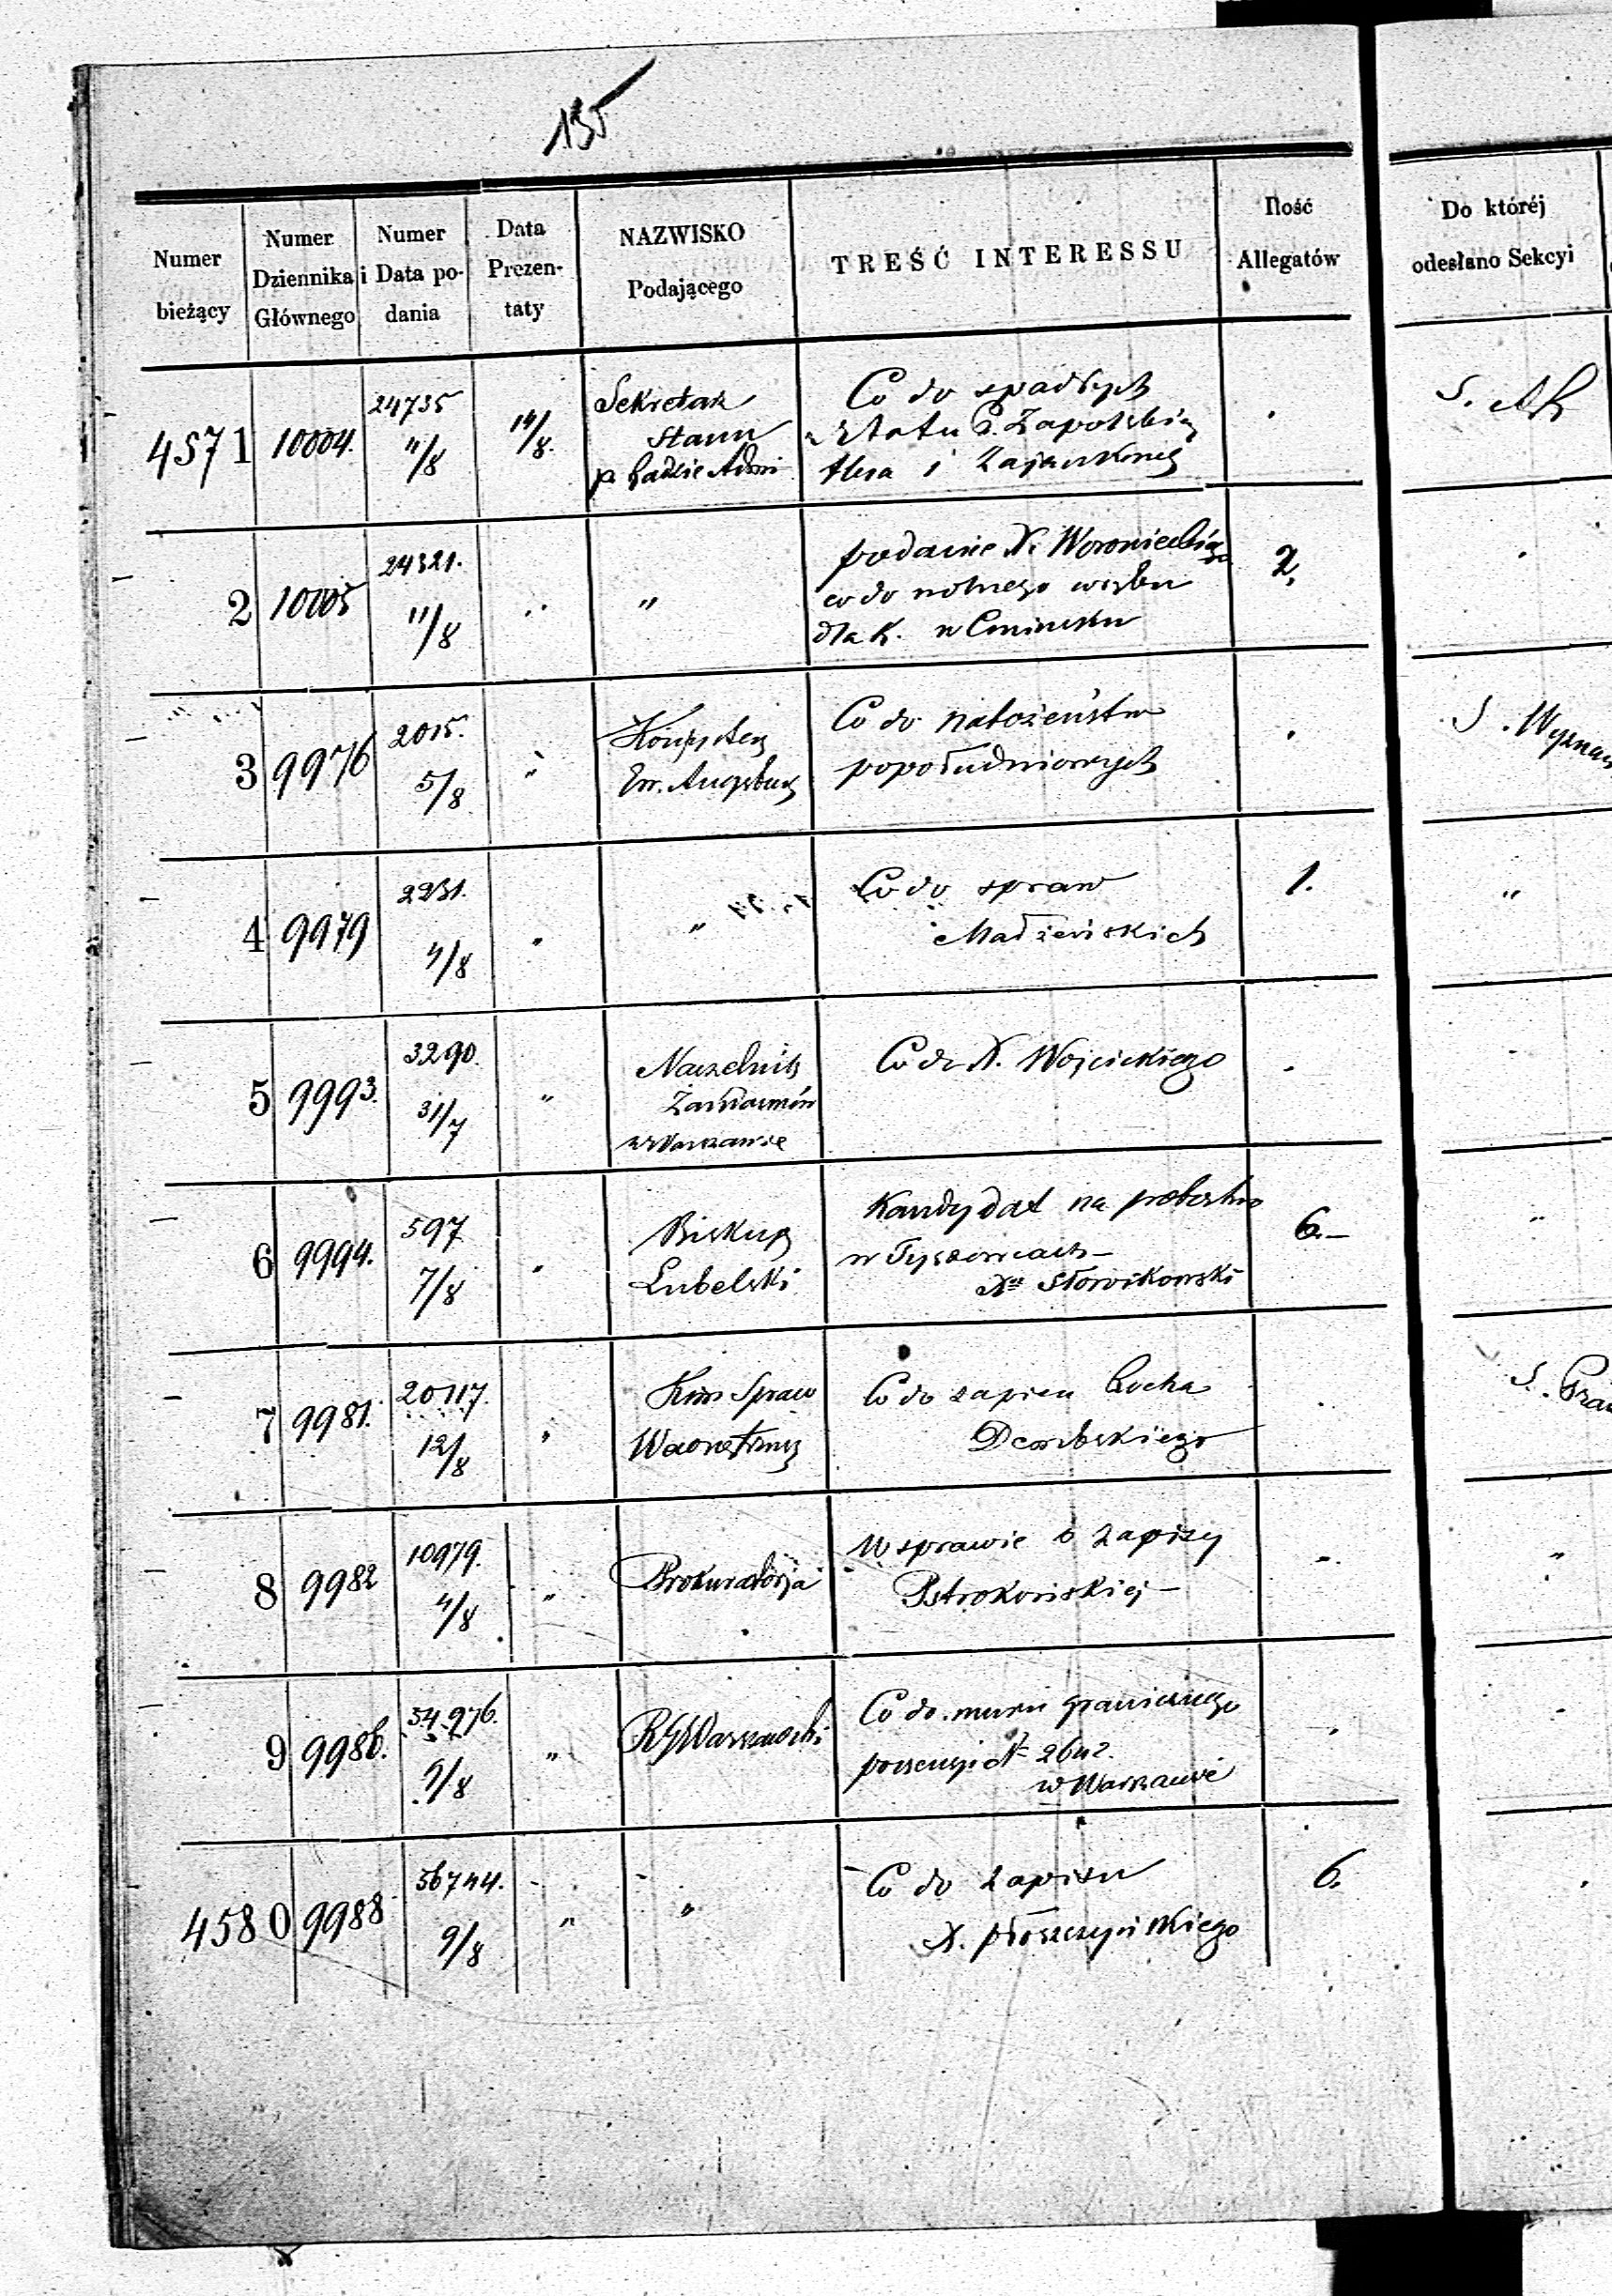 135
Numer
bieżący
Numer
Dziennika
Głównego
Numer
i Data po-
dania
Data
Prezen-
taty
NAZWISKO
Podającego
TREŚĆ INTERESSU
Ilość
Allegatów
Do któréj
odesłano Sekcyi
4571
10004.
24735
11/8
14/8.
Sekretarz
Stanu
p. Radzie Admi
Co do spadłych
z Etatu
i
S.
2
10005
24321.
11/8
"
podanie X. Woronieckiego
co do wolnego
dla K. w
2.
3
9976
2015.
5/8
"
Konsystorz
Ew. Augsburg
Co do nabożeństw
popołudniowych
S. Wyznań
4
9979
2231.
4/8
"
"
Co do spraw
Małżeńskich
1.
"
5
9993.
3290.
31/7
"
Naczelnik
Żandarmów
w Warszawie
Co do X. Wojcickiego
6
9994.
597
7/8
"
Biskup
Lubelski
Kandydat na probostwo
w Tyszowcach –
Xdz Słowikowski
6.–
"
7
9981.
20117.
12/8
"
Kom Spraw
Wewnętrznych
Co do zapisu Rocha
S. Praw
8
9982
10979.
4/8
"
Prokuratorja
W sprawie o zapisy
Pstrokońskiej –
"
9
9986.
54976.
9/8
"
RG Warszawski
Co do muru granicznego
possessyi N
w Warszawie
4580
9988
56744.
9/8
"
"
Co do zapisu
X. Płoszczyńskiego
6.